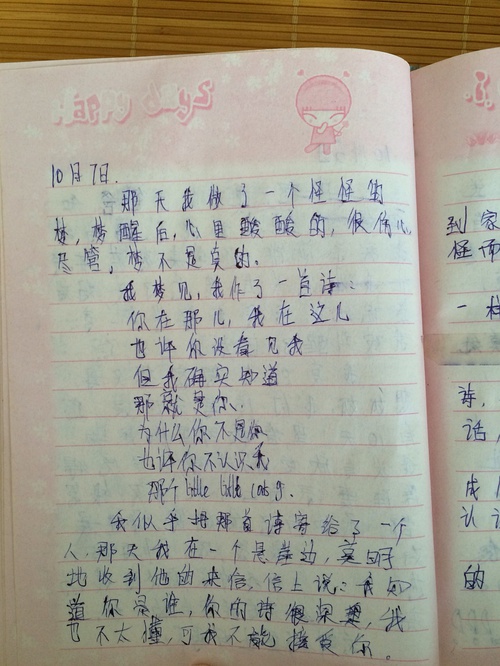 10月7日.
那天我做了一个怪怪的
梦，梦醒后，心里酸酸的，很伤心，
尽管，梦不是真的。
我梦见，我作了一首诗：
你在那儿，我在这儿
也许你没看见我
但我确实知道
那就是你.
为什么你不是你
也许你不认识我
那个little little
我似乎把那首诗寄给了一个
人，那天我在一个悬崖边，莫明
地收到他的来信，信上说：我知
道你是谁，你的诗很深奥，我
也不太懂，可我不能接受你。
到家
怪而
一样
诗，
话，
成
认识
的